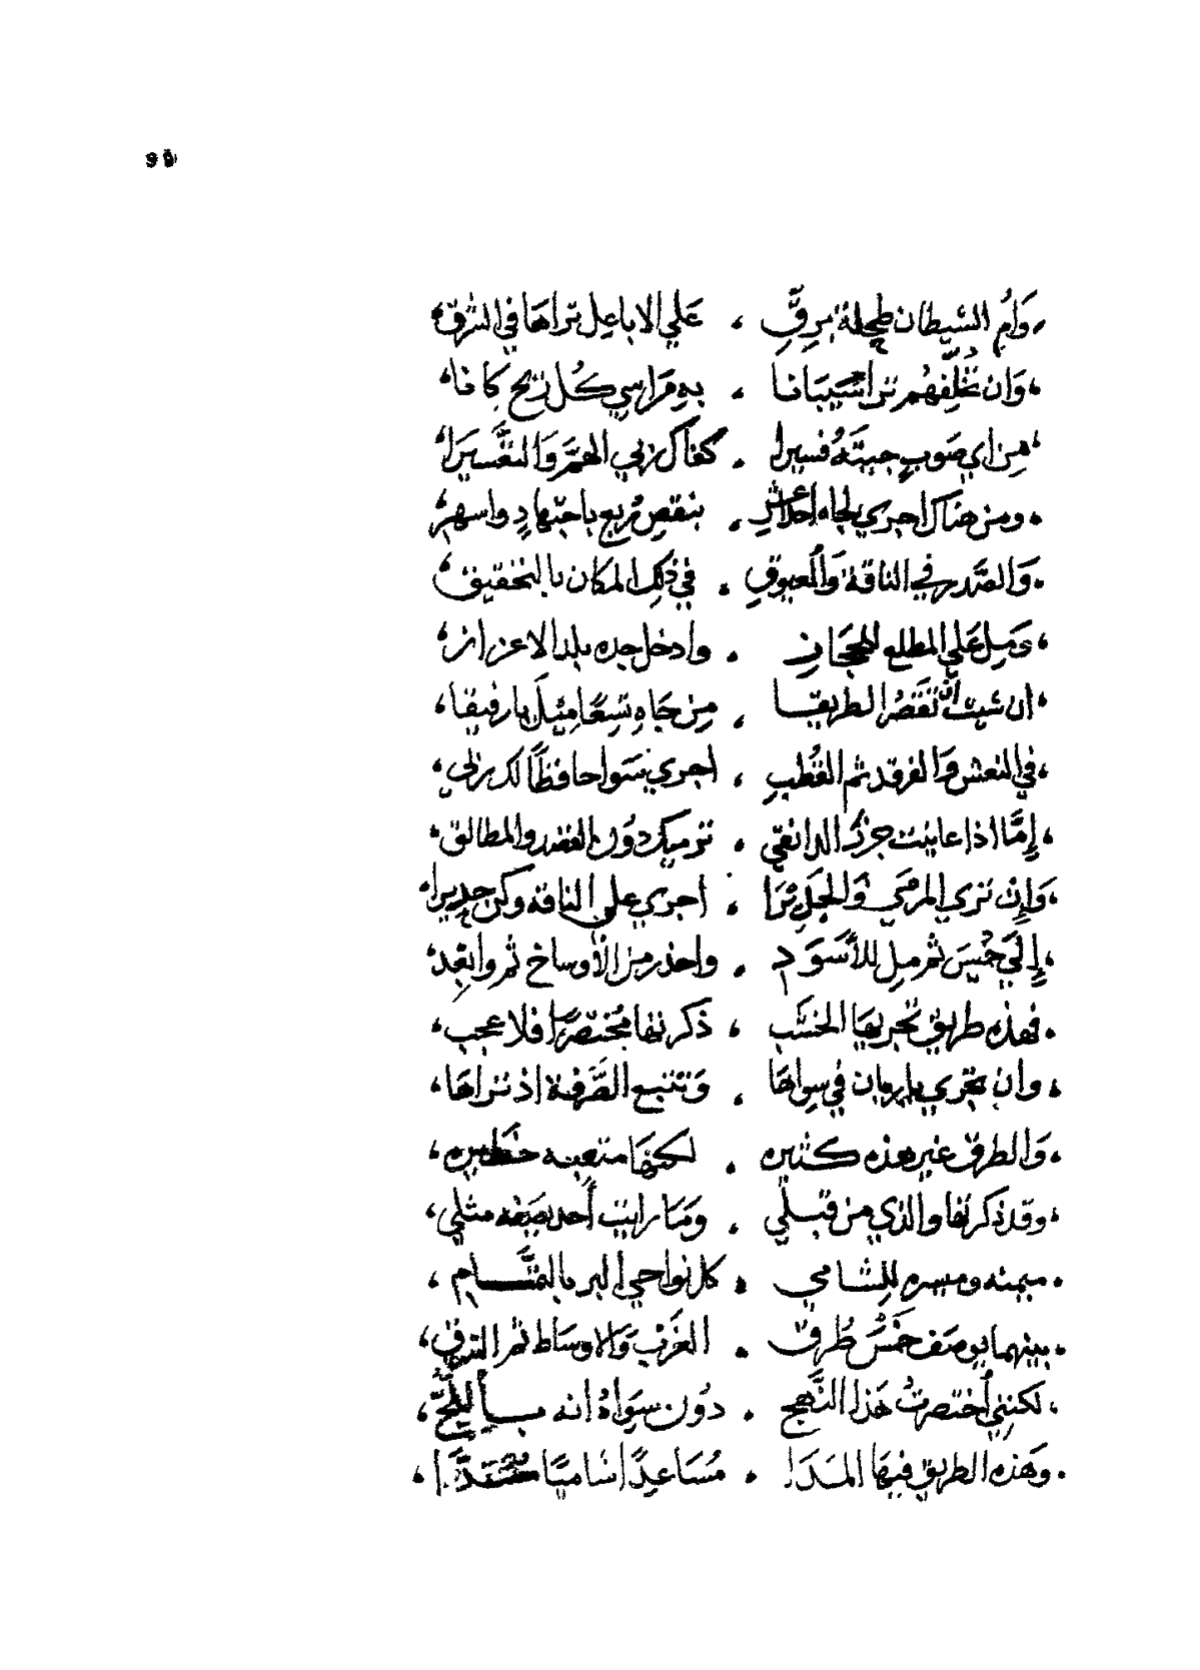 95
وَامُ الشيطان طحلة برقِّ ، علي الاباعل تراها في الشرق
وَان تُخَلِّفهُم تراَ شيبَانا ، بهِ مَرَاسي كُل ريح كانا
مِن اي صَوب جيتَهُ فسيرا . كفاك ربي الهمَّ وَالتَّفسيرَا
ومن هناك اجري لجاه احدا عشر . بنقصِ رُبع باجتهادٍ واسهر
وَالصَّدر في الناقة وَالعيوقِ . في ذلك المكان بالتحقيق
وَمِل عَلي المطلع للحِجَازِ . وادخل جده بلد الاعزاز
ان شيت ان تَقصُر الطريقا . مِن جَاهِ تسعًا مِثلَ يا رفيقا
في النعش وَالفرقد ثم القُطبِ ، اجري سَوا حافظًا لك ربي
إمَّا اذا عاينت جزرَ الدانقي . ترميك دوُن القصد والمطالق
وَإن تري المرمَي وَالجبل تَرَا . اجري علي الناقه وكن جديرا
إلي خَميسَ ثم مِل للأسوَدِ . واحذر من الأوساخ ثم وابعِد
فهذه طريق تجريها الخشَب ، ذكرتها مُختصَرًا فلا عجب
وان تجري يا ربان في سِواهَا . وَتتبع الصَّرفة اذ تراهَا
وَالطرق غير هذه كثيره . لكنهَا متعبه خطيره
وقد ذكرتها والذي من قبلي . وَمَا رايت أحد يصَفه مثلي
ميمنه وميسره للِشامي . كل نواحي البر بالتمَّام
بينهما يوصَف خَمسُ طُرق . الغَرب وَالاوسَاط ثم الشرق
لكنني أختصرتُ هَذا النَّهج . دُون سِوَاهُ انه
وهَذه الطريق فيهَا المَدَا . مُسَاعِدًا شاميًا